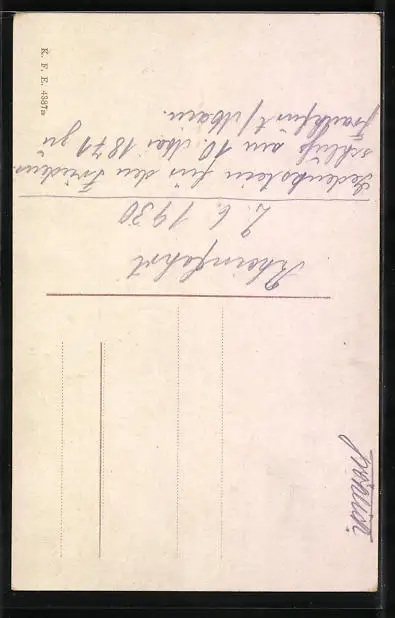 Rheinfahrt
2. 6. 1930
Gedenkstein für den Friedens
schluß am 10. Mai 1871 zu
Frankfurt/Main.
K. F. E. 4387a